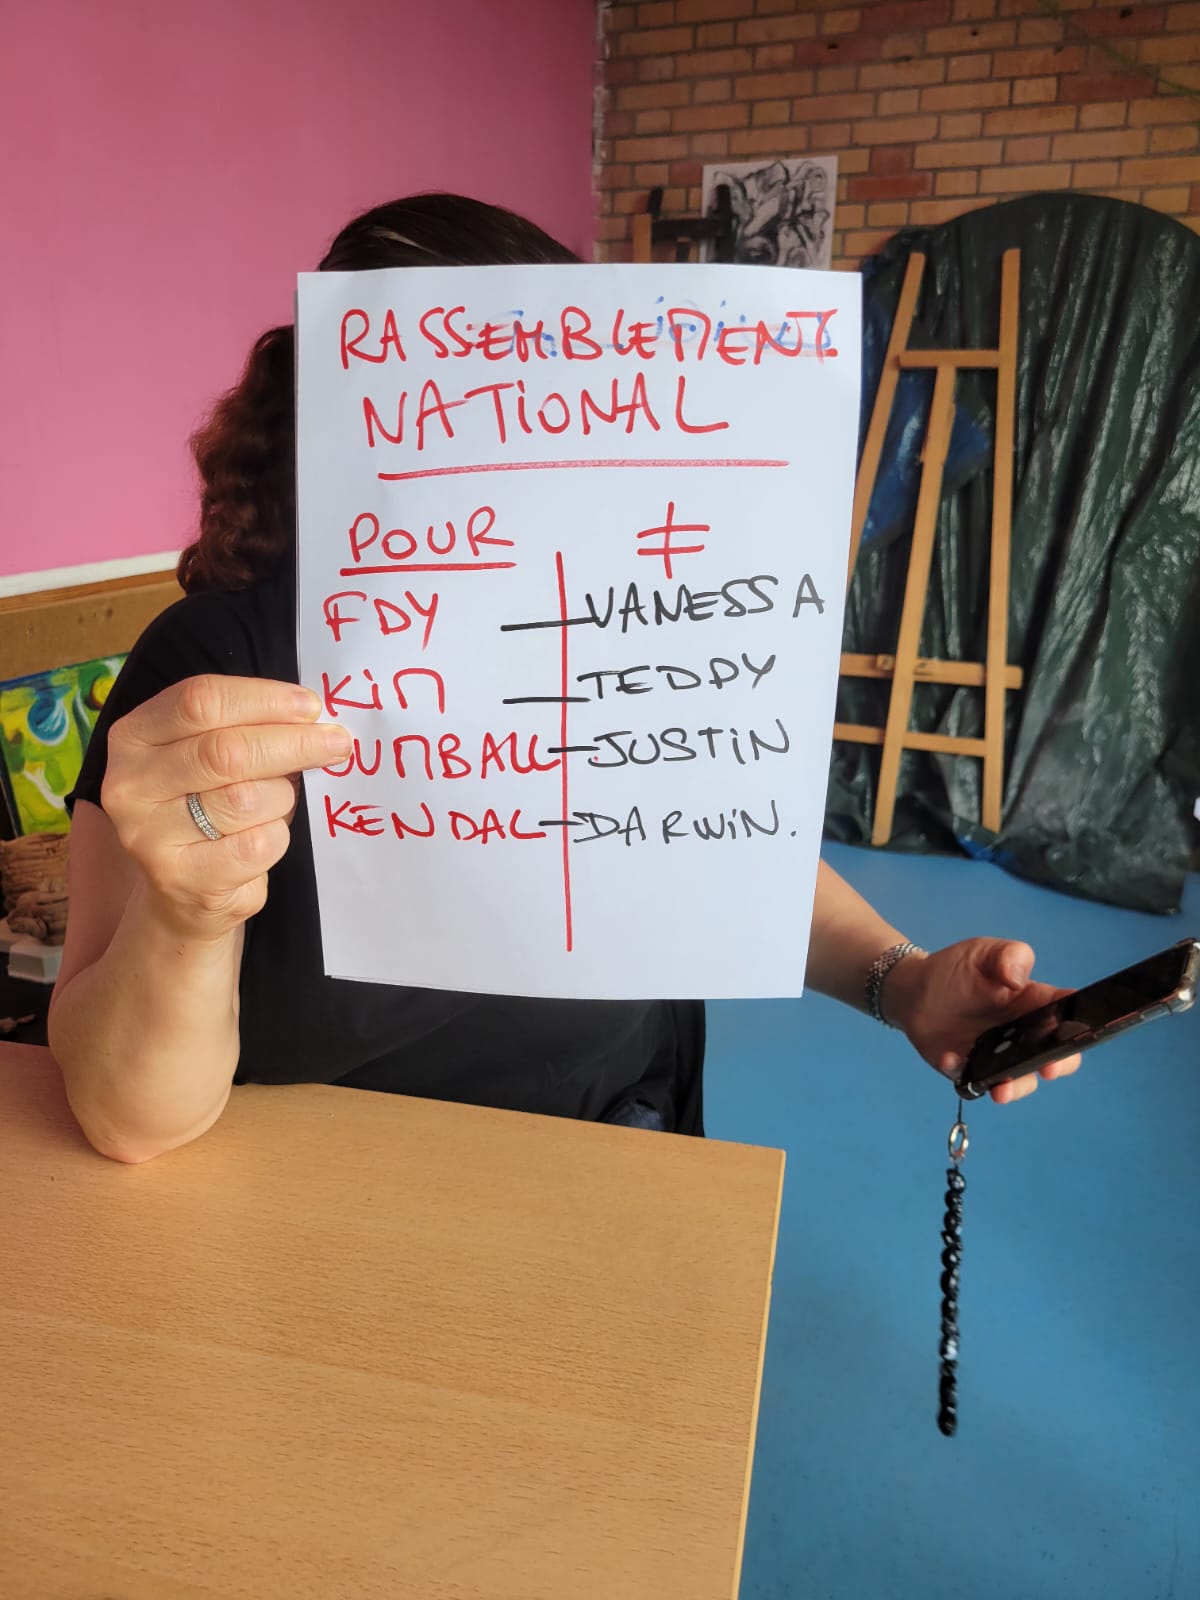 RASSEMBLEMENT
NATIONAL
POUR ≠
FDY — VANESSA
KiM — TEDDY
UMBALL — JUSTiN
KENDAL — DARWiN.